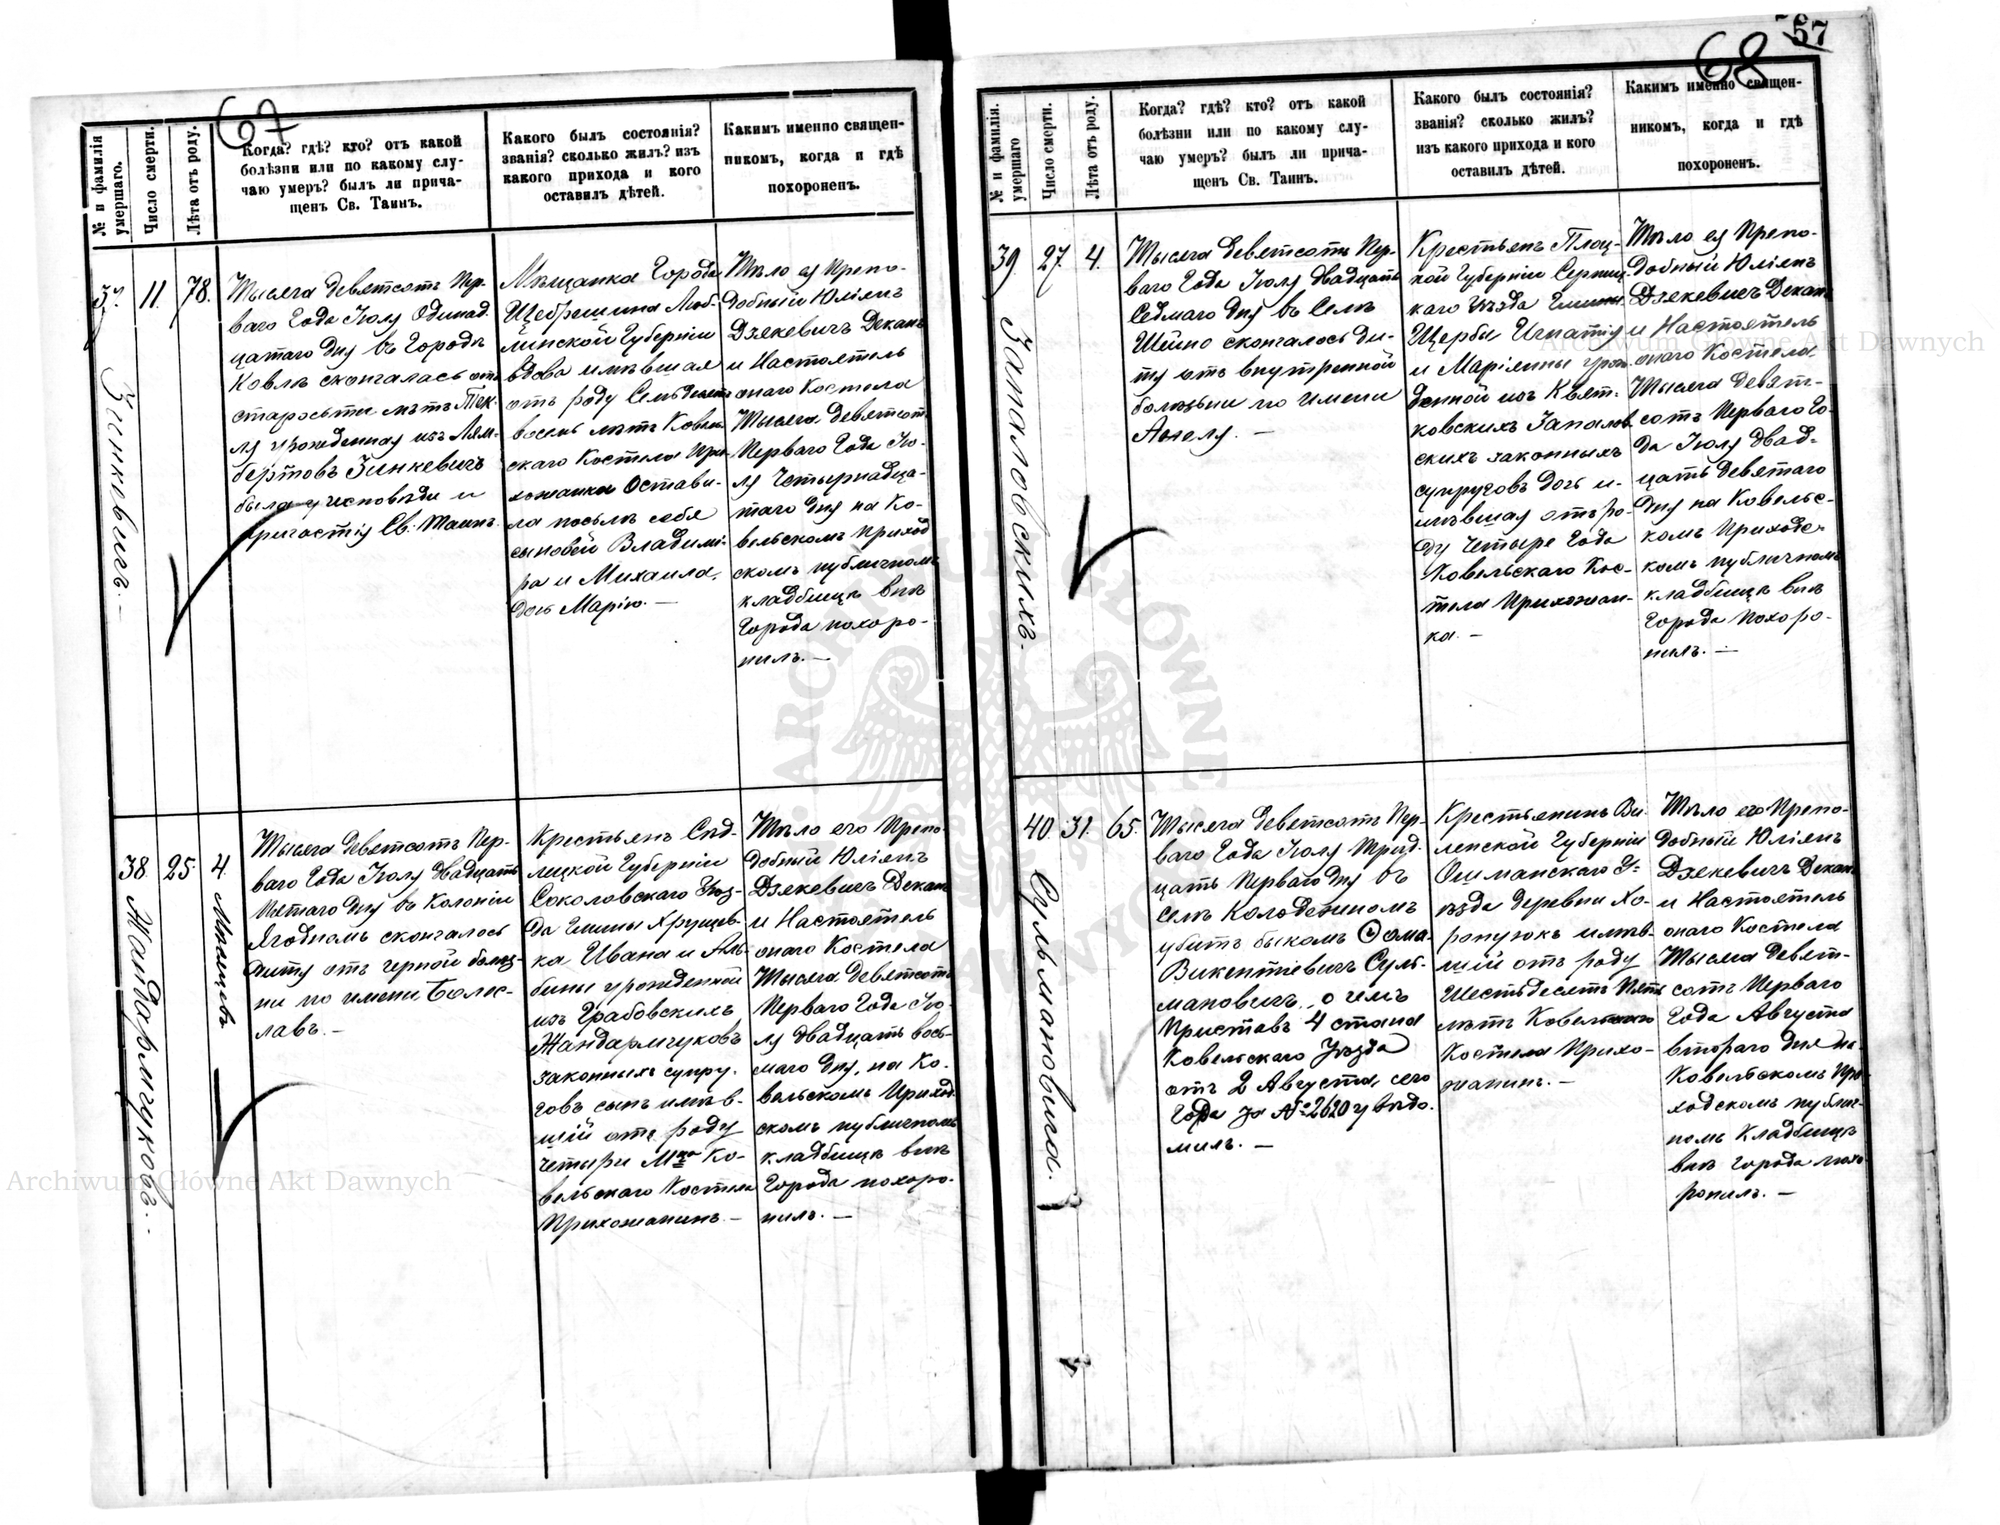 67
№ и фамилія умершаго.
Число смерти.
Лѣта отъ роду.
Когда? гдѣ? кто? отъ какой
болѣзни или по какому слу-
чаю умеръ? былъ ли прича-
щенъ Св. Таинъ.
Какого былъ состоянія?
званія? сколько жилъ? изъ
какого прихода и кого
оставилъ дѣтей.
Каким именно священ-
никомъ, когда и гдѣ
похороненъ.
37
Зинкевичъ.—
11.
78.
Тысяча девятсотъ Пер-
ваго Года Іюля Одинад-
цатаго дня въ Городѣ
Ковлѣ скончалась отъ
старости лѣтъ Тек-
ля урожденная изъ Лям-
бертовъ Зинкевичъ
была у исповѣди и
причастія Св. Таинъ.
Мѣщанка Города
Щебрешина Люб-
линской Губерніи
вдова имѣвшая
отъ роду Семьдесятъ
восемь лѣтъ Ковель-
скаго Костела При-
хожанка Остави-
ла послѣ себя
сыновей Владимі-
ра и Михаила,
дочь Марію.—
Тѣло ея Препо-
добный Юліянъ
Дзякевичъ Деканъ
и Настоятель
онаго Костела
Тысяча девятсотъ
Перваго Года Ію-
ля Четырнадца-
таго дня на Ко-
вельскомъ Приход
скомъ публичномъ
кладбищѣ внѣ
Города похоро-
нилъ.—
38.
Жандармчуковъ.—
25
4.
Мѣсяцовъ
Тысяча девятсотъ Пер-
ваго Года Іюля Двадцать
Пятаго дня въ Колоніи
Ягодномъ скончалось
дитя отъ черной болѣз-
ни по имени Болес-
лавъ.—
Крестьянъ Сѣд-
лецкой Губерніи
Соколовскаго Уѣз-
да Гмины Хрущев-
ка Ивана и Аль-
бины урожденной
изъ Грабовскихъ
Жандармчуковъ
законныхъ супру-
говъ сынъ имѣв-
шій отъ роду
четыри Мца Ко-
вельскаго Костела
Прихожанинъ.—
Тѣло его Препо-
добный Юліянъ
Дзякевичъ Деканъ
и Настоятель
онаго Костела
Тысяча девятсотъ
Перваго Года Ію-
ля двадцать вось-
маго дня, на Ко-
вельскомъ Приход
скомъ публичномъ
кладбищѣ внѣ
Города похоро-
нилъ.—
57
68
№ и фамилія умершаго
Число смерти.
Лѣта отъ роду.
Когда? гдѣ? кто? отъ какой
болѣзни или по какому слу-
чаю умеръ? былъ ли прича-
щенъ Св. Таинъ.
Какого былъ состоянія?
званія? сколько жилъ?
изъ какого прихода и кого
оставилъ дѣтей.
Каким именно священ-
никомъ, когда и гдѣ
похороненъ.
39
Запаловскихъ.
27.
4.
Тысяча девятсотъ Пер-
ваго Года Іюля Двадцать
Седмаго дня въ Селѣ
Шейно скончалось ди-
тя отъ внутренной
болѣзни по имени
Анеля.—
Крестьянъ Плоц-
кой Губерніи Серпец-
каго Уѣзда Гмины
Щербы Игнатія
и Маріянны урож-
денной изъ Квят-
ковскихъ Запалов-
скихъ законныхъ
супруговъ дочь и-
мѣвшая отъ ро-
ду Четыре Года
Ковельскаго Кос-
тела Прихожан-
ка.—
Тѣло ея Препо-
добный Юліянъ
Дзякевичъ Деканъ
и Настоятель
онаго Костела
Тысяча девят-
сотъ Перваго Го-
да Іюля Двад-
цать девятаго
дня на Ковельс-
комъ Приходс-
комъ публичномъ
кладбищѣ внѣ
Города Похоро-
нилъ.—
40.
Сульмановича.
31.
65.
Тысяча девятсотъ Пер-
ваго Года Іюля Трид-
цать Перваго дня въ
Селѣ Колодезномъ
убитъ быкомъ Ѳома
Викентіевичъ Суль-
мановичъ, о чемъ
Приставъ 4 стана
Ковельскаго Уѣзда
отъ 2 Августа, сего
Года за №2620 увѣдо-
милъ.—
Крестьянинъ Ви-
ленской Губерніи
Ошманскаго У-
ѣзда деревни
имѣв-
шій отъ роду
Шестьдесятъ Пять
лѣтъ Ковельскаго
Костела Прихо-
жанинъ.—
Тѣло его Препо-
добный Юліянъ
Дзякевичъ Деканъ
и Настоятель
онаго Костела
Тысяча девят-
сотъ Перваго
Года Августа
втораго дня на
Ковельскомъ При-
ходскомъ публич-
номъ Кладбищѣ
внѣ Города похо-
ронилъ.—
Archiwum Główne Akt Dawnych
Archiwum Główne Akt Dawnych
ARCHIWUM GŁÓWNE AKT DAWNYCH